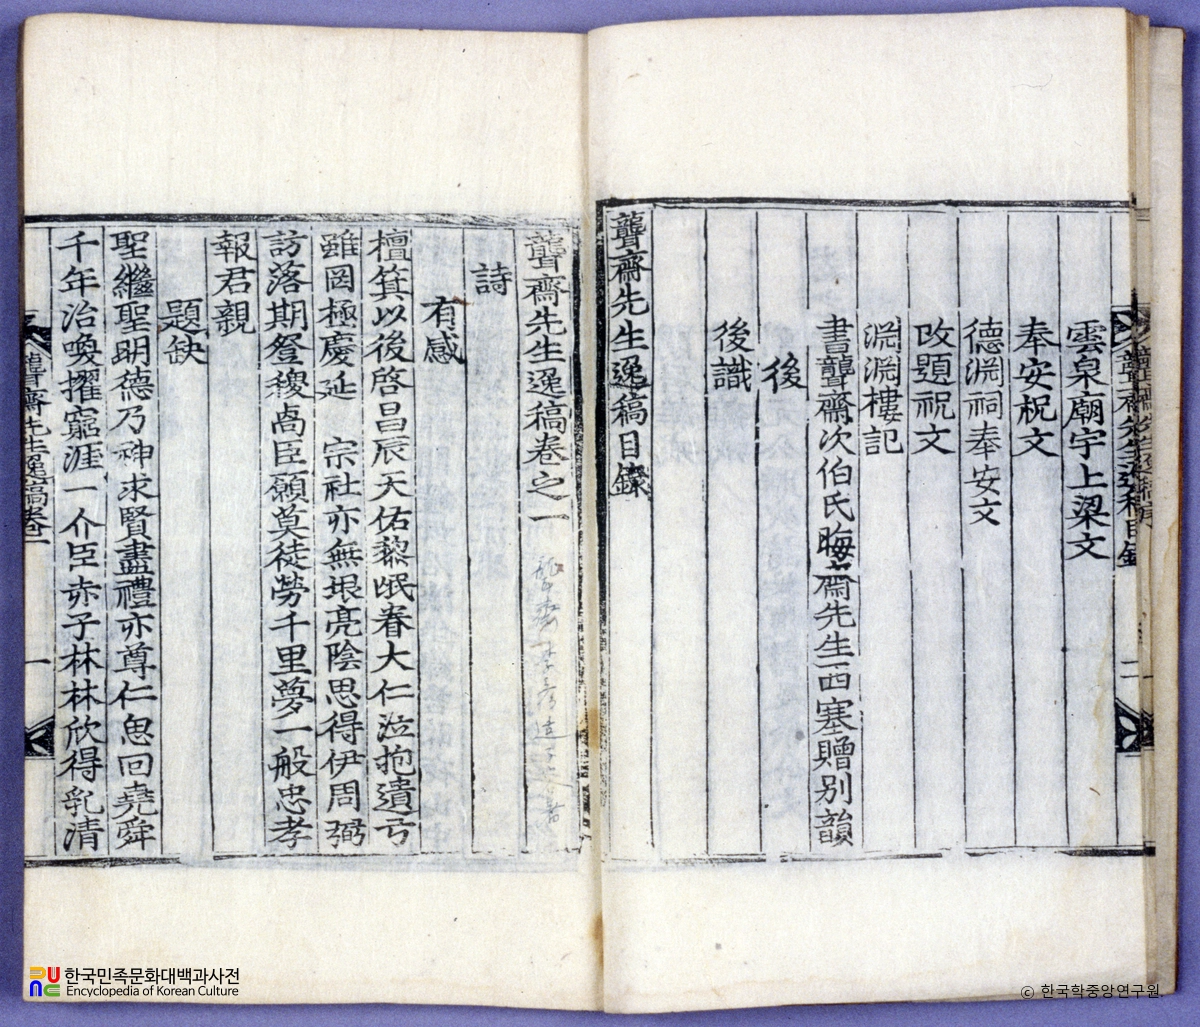 雲泉廟宇上梁文
奉安祝文
德淵祠奉安文
改題祝文
淵淵樓記
書聾齋次伯氏晦齋先生西塞贈別韻
後
後識
聾齋先生逸稿目錄
聾齋先生逸稿卷之一
詩
有感
檀箕以後啓昌辰天佑黎氓眷大仁泣抱遺弓
雖罔極慶延 宗社亦無垠亮陰思得伊周弼
訪落期登稷卨臣願莫徒勞千里夢一般忠孝
報君親
題缺
聖繼聖明德乃神求賢盡禮亦尊仁思回堯舜
千年治喚擢窮涯一介臣赤子林林欣得乳清
聾齋先生逸稿卷一
一
二
한국민족문화대백과사전
Encyclopedia of Korean Culture
ⓒ 한국학중앙연구원